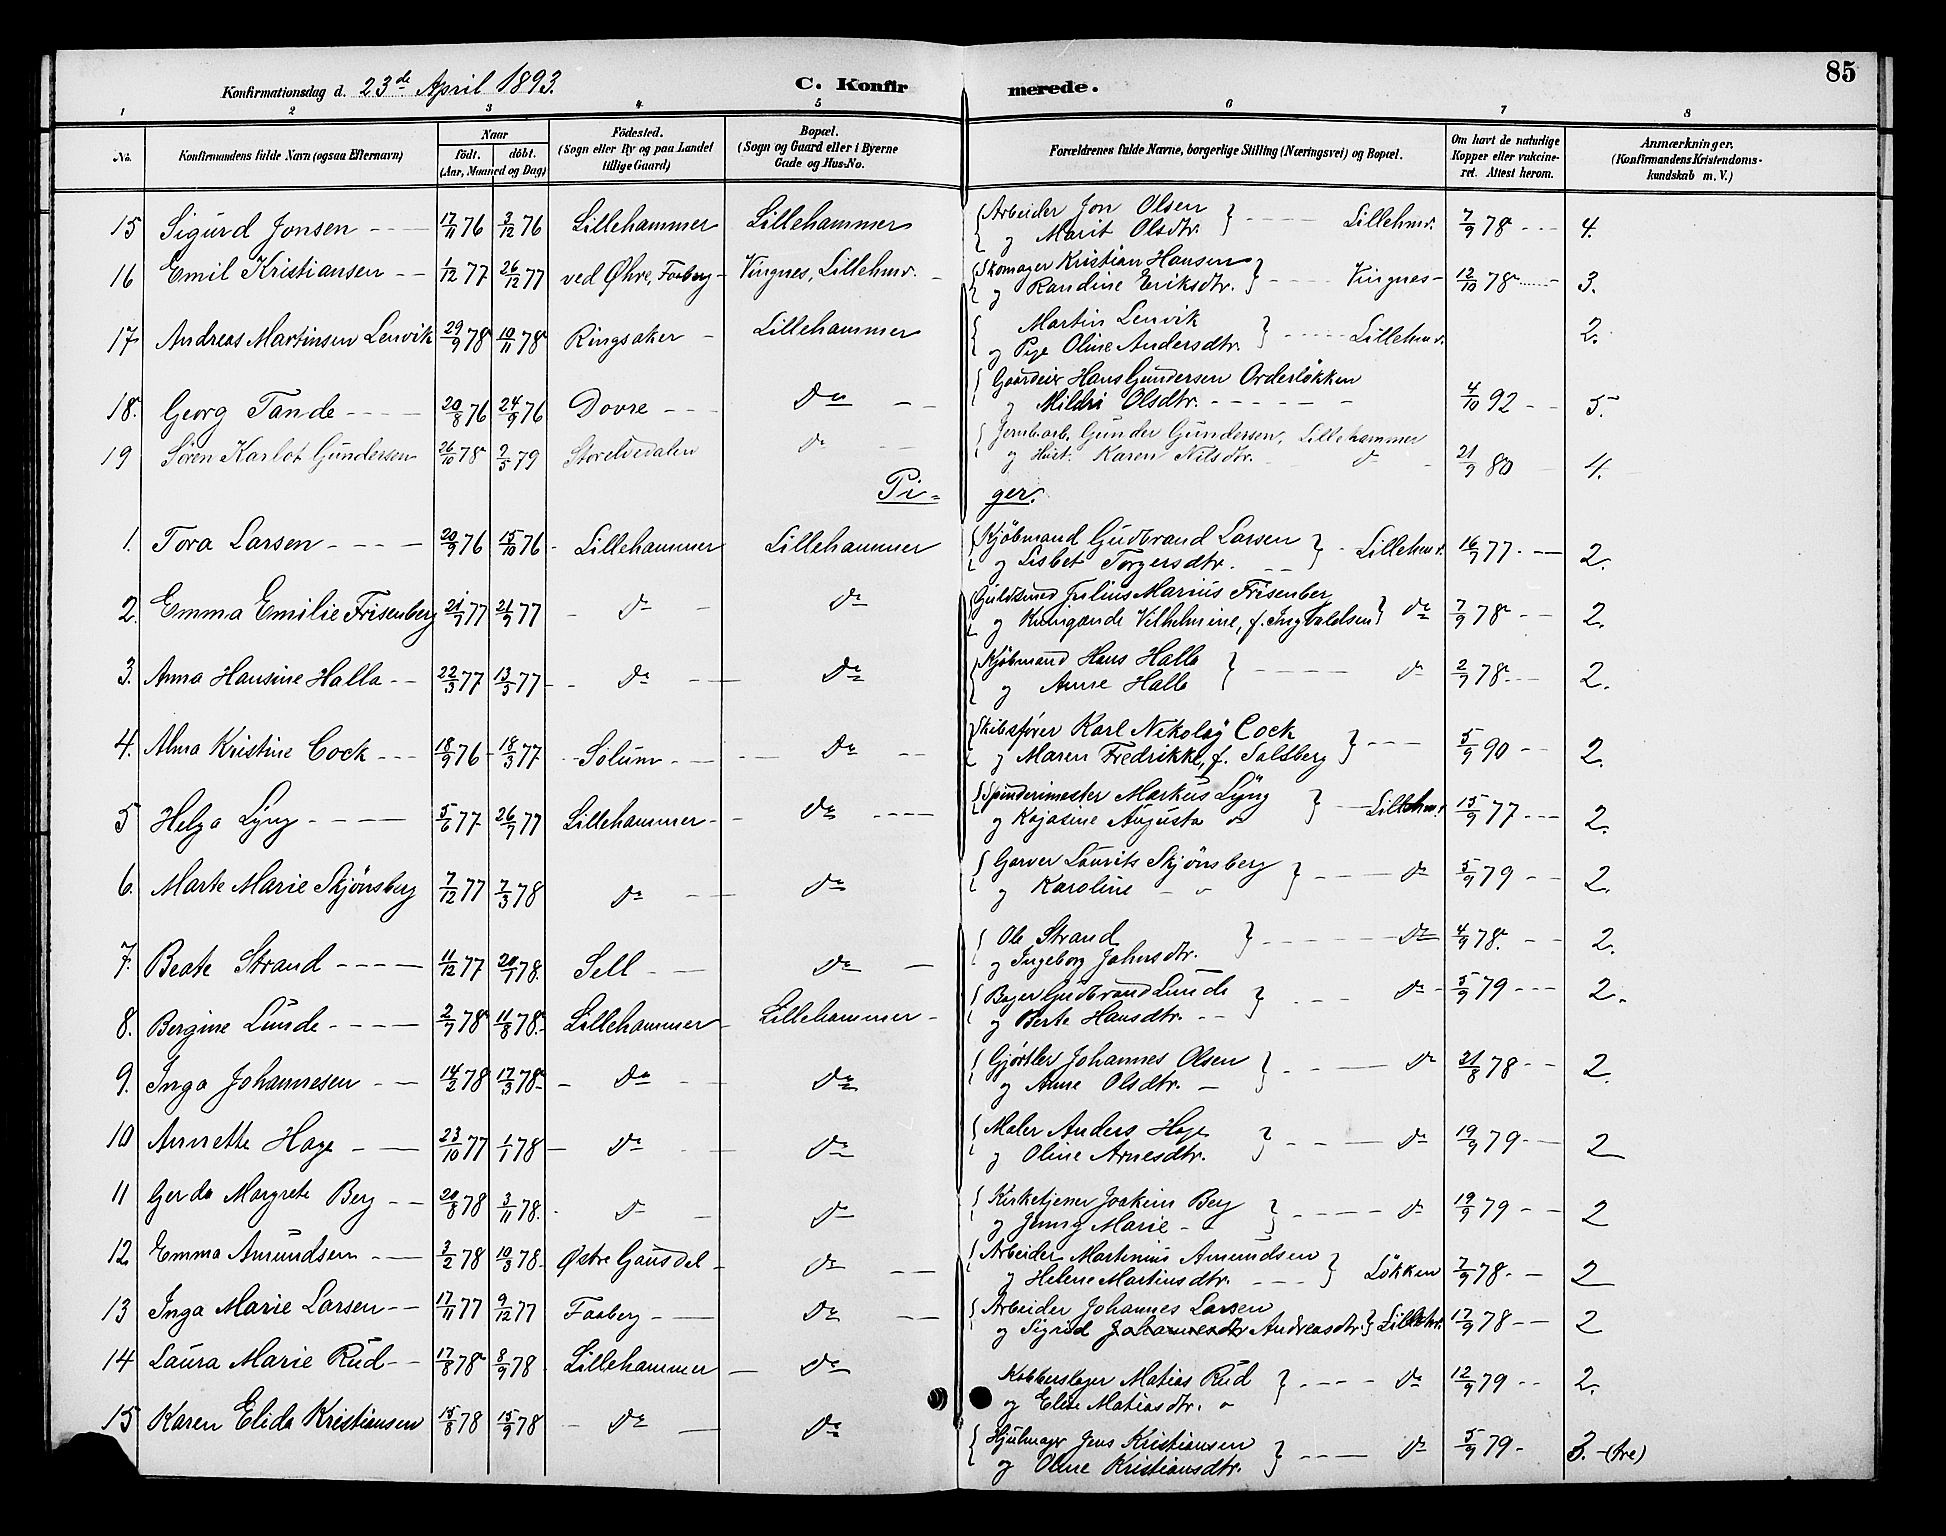 85
Konfirmationsdag d. 23de April 1893.
C. Konfirmerede.
1 2 3 4 5 6 7 8
No. Konfirmandens fulde Navn (ogsaa Efternavn) Naar født. døbt. (Aar, Maaned og Dag) Födested. (Sogn eller By og paa Landet tillige Gaard) Bopæl. (Sogn og Gaard eller i Byerne Gade og Hus-No. Forældrenes fulde Navne, borgerlige Stilling (Næringsvei) og Bopæl. Om havt de naturlige Kopper eller vakcineret. Attest herom. Anmærkninger. (Konfirmandens Kristendomskundskab m. V.)
15 Sigurd Jonsen 17/11 76 3/12 76 Lillehammer Lillehammer Arbeider Jon Olsen Lillehmr. 7/9 78 4.
og Marit Olsdtr.
16 Emil Kristiansen 1/12 77 26/12 77 ved Øhre, Faaberg Vingnes, Lillehmr. Skomager Kristian Hansen Vingnes 12/10 78 3.
og Randine Eriksdtr.
17 Andreas Martinsen Lenvik 29/9 78 10/11 78 Ringsaker Lillehammer Martin Lenvik Lillehmr. 2.
og Oline Andersdtr.
18. Georg Tande 20/8 76 24/9 76 Dovre Do Gaardeier Hans Gundersen Orderløkken 4/10 92 5.
og Mildri Olsdtr.
19 Søren Karlot Gundersen 26/10 78 2/5 79 Storelvedalen do Jernb.arb. Gunder Gundersen, Lillehammer 21/9 80 4.
og Hust. Karen Nilsdtr. do
Piger.
1. Tora Larsen 20/9 76 15/10 76 Lillehammer Lillehammer Kjøbmand Gudbrand Larsen Lillehmr. 16/9 77 2.
og Lisbet Torgersdtr.
2. Emma Emilie Frisenberg 21/7 77 21/9 77 do do Guldsmed Julius Marius Frisenberg do 7/9 78 2.
og Kunigunde Vilhelmine, f. Ingvaldsen
3. Anna Hansine Halla 22/3 77 13/5 77 do do Kjøbmand Hans Halla do 2/9 78 2.
og Anne Halla
4. Alma Kristine Cock 18/9 76 18/3 77 Solum do Skibsfører Karl Nikolay Cock 5/9 90 2.
og Maren Fredrikke, f. Solsberg
5 Helga Lyng 5/6 77 26/7 77 Lillehammer do Spinderimester Markus Lyng Lillehmr. 15/9 77 2.
og Kajasine Augusta do
6. Marte Marie Skjønsberg 7/12 77 7/3 78 do do Garver Laurits Skjønsberg do 5/9 79 2.
og Karoline
7. Beate Strand 11/12 77 20/1 78. Sell do Ole Strand do 4/9 78. 2.
og Ingeborg Johnsdtr.
8. Bergine Lunde 2/7 78 11/8 78. Lillehammer Lillehammer Bager Gudbrand Lunde do 5/9 79 2.
og Berte Hansdtr.
9. Inga Johannesen 14/2 78 17/3 78 do do Gjørtler Johannes Olsen do 21/8 78 2.
og Anne Olsdtr.
10 Annette Hage 23/10 77 1/1 78 do do Maler Anders Hage do 19/9 79 2
og Oline Arnesdtr.
11 Gerda Margrete Berg 20/8 78 3/11 78. do do Kirketjener Joakim Berg do 19/9 79 2
og Jenny Marie
12. Emma Amundsen 3/2 78 10/3 78. Østre Gausdal do Arbeider Martinius Amundsen Løkken 7/9 78 2
og Helene Martinsdtr.
13 Inga Marie Larsen 17/11 77 9/12 77 Faaberg do Arbeider Johannes Larsen Lillehr. 17/9 78 2
og Sigrid Johannesdtr Andreasdtr.
14 Laura Marie Rud 17/8 78 8/9 78 Lillehammer do Kobberslager Matias Rud do 12/9 79 2.
og Eline Matiasdtr.
15 Karen Elida Kristiansen 15/8 78 15/9 78 do do Hjulmager Jens Kristiansen do 5/9 79 3. (tre)
og Oline Kristiansdtr.